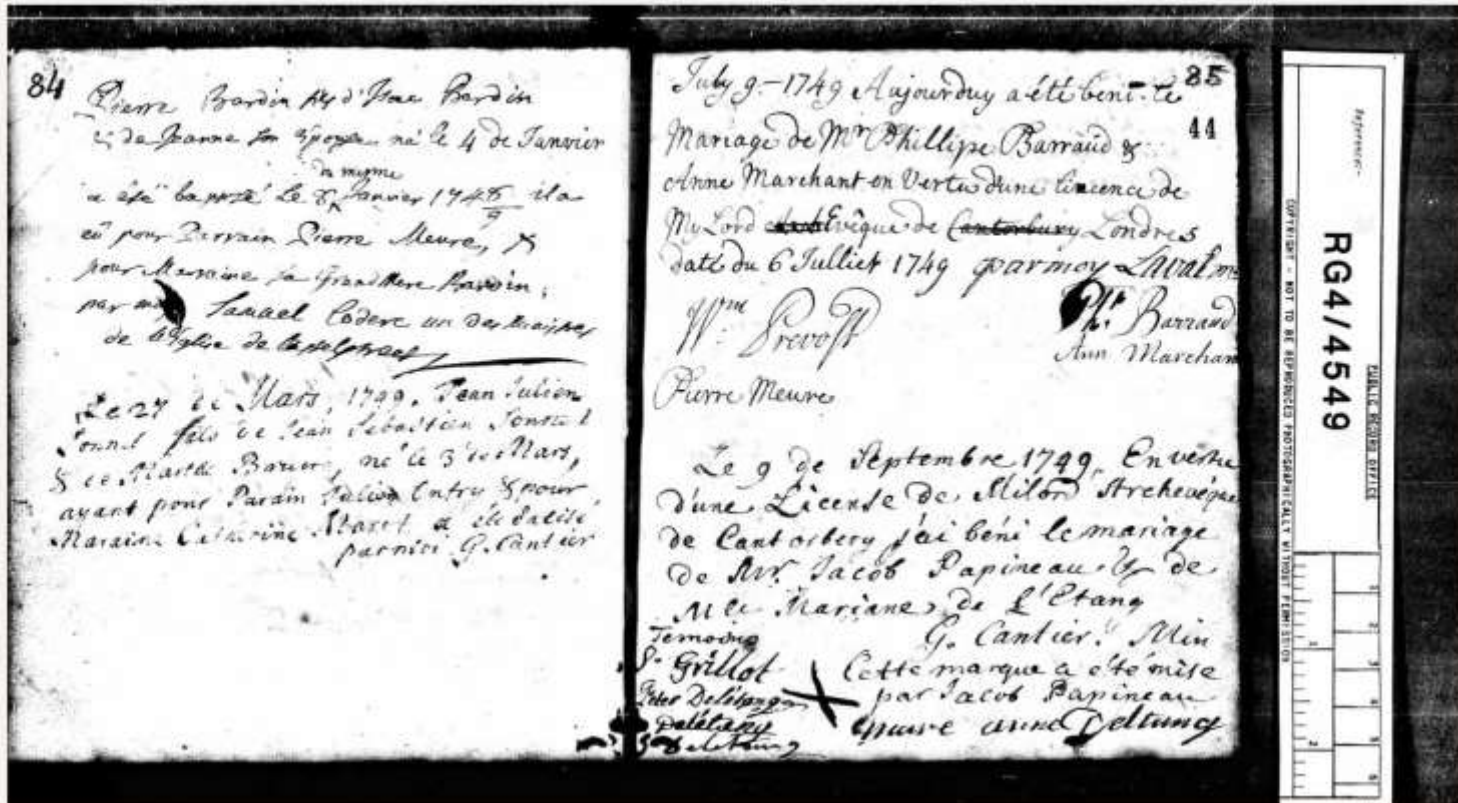 84
Pierre Bardin fils d'Isaac Bardin
& de Jeanne son Epouse né le 4 de Janvier
du mesme
a été baptisé Le 8 Janvier 1748/9 il a
eû pour Parrain Pierre Meure, &
pour Marraine sa Grand Mere Bardin,
par moi Samuel Codere un des
de l'Eglise de
Le 27 de Mars, 1749, Jean Julien
fils de Jean Sebastien
& de Marthe né le 3 de Mars,
ayant pour Parain Entry & pour
Maraine Catherine a été batisé
par moi G. Cantier
85
44
July 9.- 1749 Aujourduy a été beni le
Mariage de Mr Phillipe Barraud &
Anne Marchant en Vertu d'une Licence de
My Lord Evêque de Cantorbury Londres
daté du 6 Julliet 1749 par moy Laval
Wm Prevost
Phr. Barraud
Ann Marchan
Pierre Meure
Le 9 de Septembre 1749, En vertu
d'une License de Milord Archevêque
de Cantorbery j'ai béni le mariage
de Mr. Jacob Papineau & de
Mlle Mariane de L'Etang
G. Cantier. Min
Temoins
S. Grillot
Peter Deletang
Deletang
Deletang
Cette marque a été mise
par Jacob Papineau
marie anne Deltang
Reference:-
PUBLIC RECORD OFFICE
RG4/4549
COPYRIGHT - NOT TO BE REPRODUCED PHOTOGRAPHICALLY WITHOUT PERMISSION
1
2